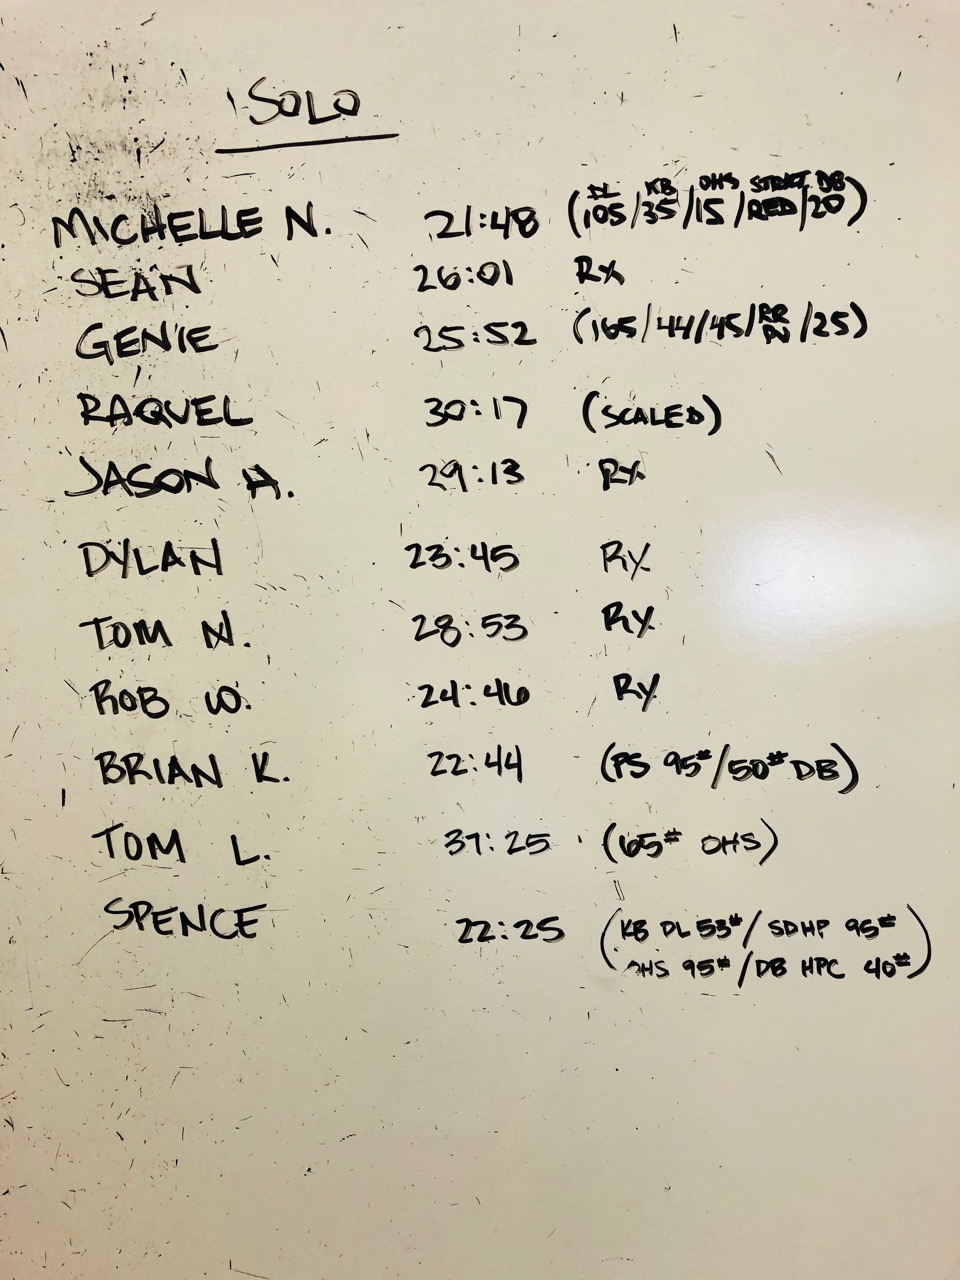 SOLO
DL KB OHS STRICT DB
MICHELLE N. 21:48 (105/35/15/RED/20)
SEAN 26:01 Rx
GENIE 25:52 (165/44/45/RR /25)
RAQUEL 30:17 (SCALED)
JASON H. 29:13 Rx
DYLAN 23:45 Rx
TOM N. 28:53 Rx
ROB W. 24:46 Rx
BRIAN K. 22:44 (PS 95#/50# DB)
TOM L. 37:25 (65# OHS)
SPENCE 22:25 (KB DL 53#/ SDHP 95#
OHS 95#/DB HPC 40#)